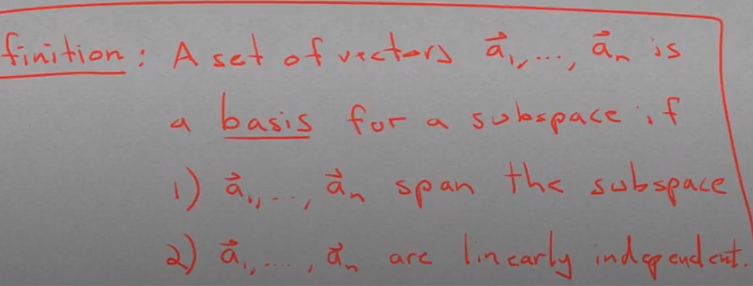 finition: A set of vectors a⃗₁,..., a⃗ₙ is
a basis for a subspace if
1) a⃗₁,..., a⃗ₙ span the subspace
2) a⃗₁,..., a⃗ₙ are linearly independent.